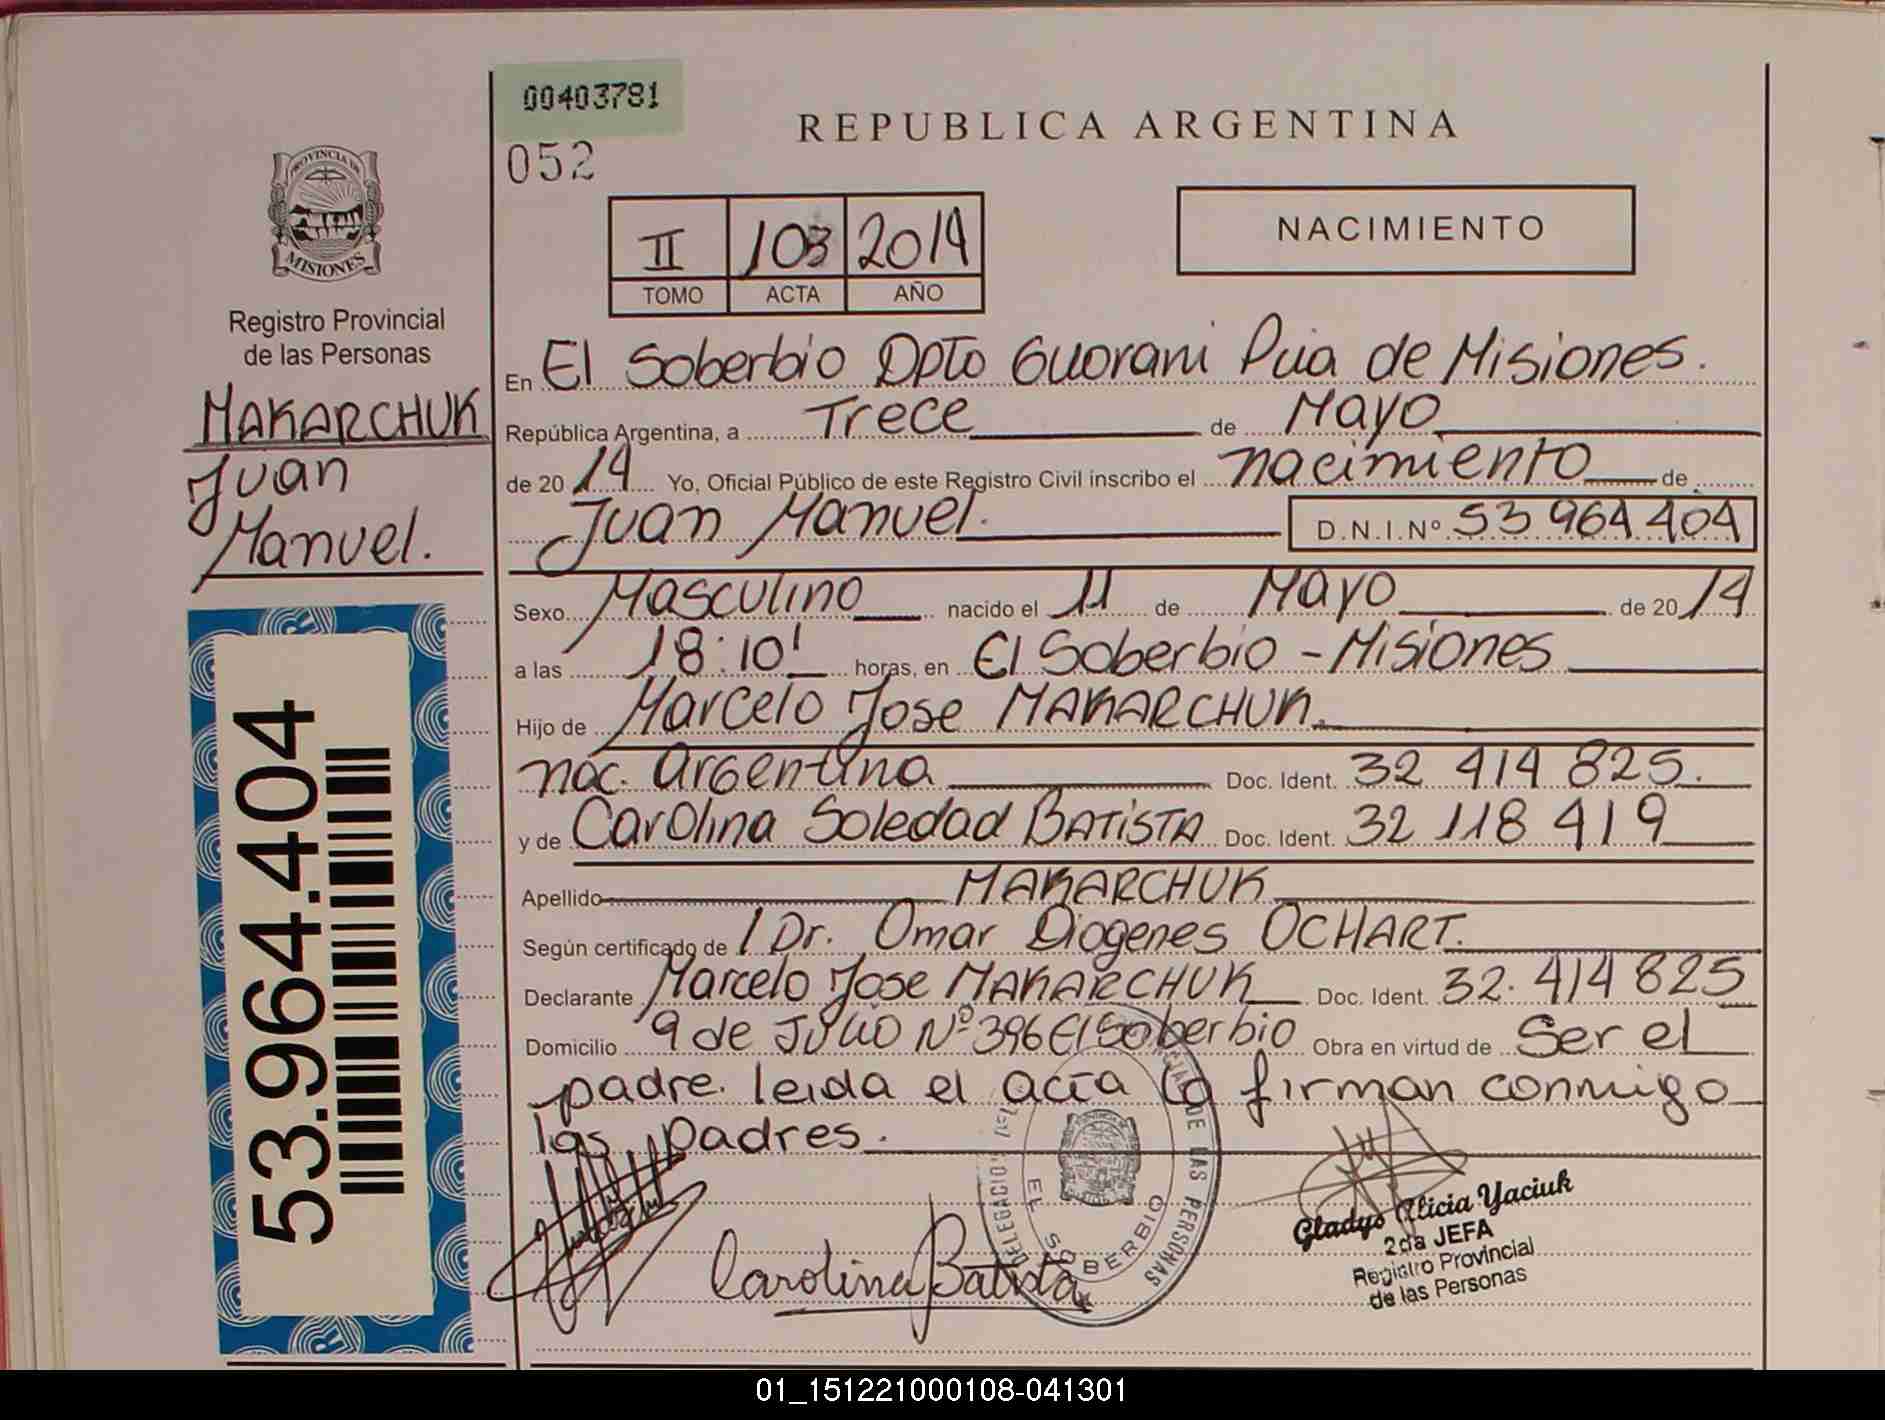 00403781
052
REPUBLICA ARGENTINA
PROVINCIA DE
MISIONES
Registro Provincial
de las Personas
MAKARCHUK
Juan
Manuel.
53.964.404
II 103 2014
TOMO ACTA AÑO
NACIMIENTO
En El Soberbio Dpto Guarani Pcia de Misiones.
República Argentina, a Trece de Mayo
de 2014 Yo, Oficial Público de este Registro Civil inscribo el nacimiento de
Juan Manuel. D.N.I.Nº 53 964 404
Sexo Masculino nacido el 11 de Mayo de 2014
a las 18:10' horas, en El Soberbio - Misiones
Hijo de Marcelo Jose MAKARCHUK.
nac. Argentina Doc. Ident. 32 414 825.
y de Carolina Soledad BATISTA Doc. Ident. 32 118 419
Apellido MAKARCHUK
Según certificado de / Dr. Omar Diogenes OCHART.
Declarante Marcelo Jose MAKARCHUK Doc. Ident. 32. 414 825
Domicilio 9 de Julio Nº 396 El Soberbio Obra en virtud de Ser el
padre. leida el acta la firman conmigo
los padres.
DELEGACION DE LAS PERSONAS
EL SOBERBIO
Carolina Batista
Gladys Alicia Yaciuk
2da JEFA
Registro Provincial
de las Personas
01_151221000108-041301